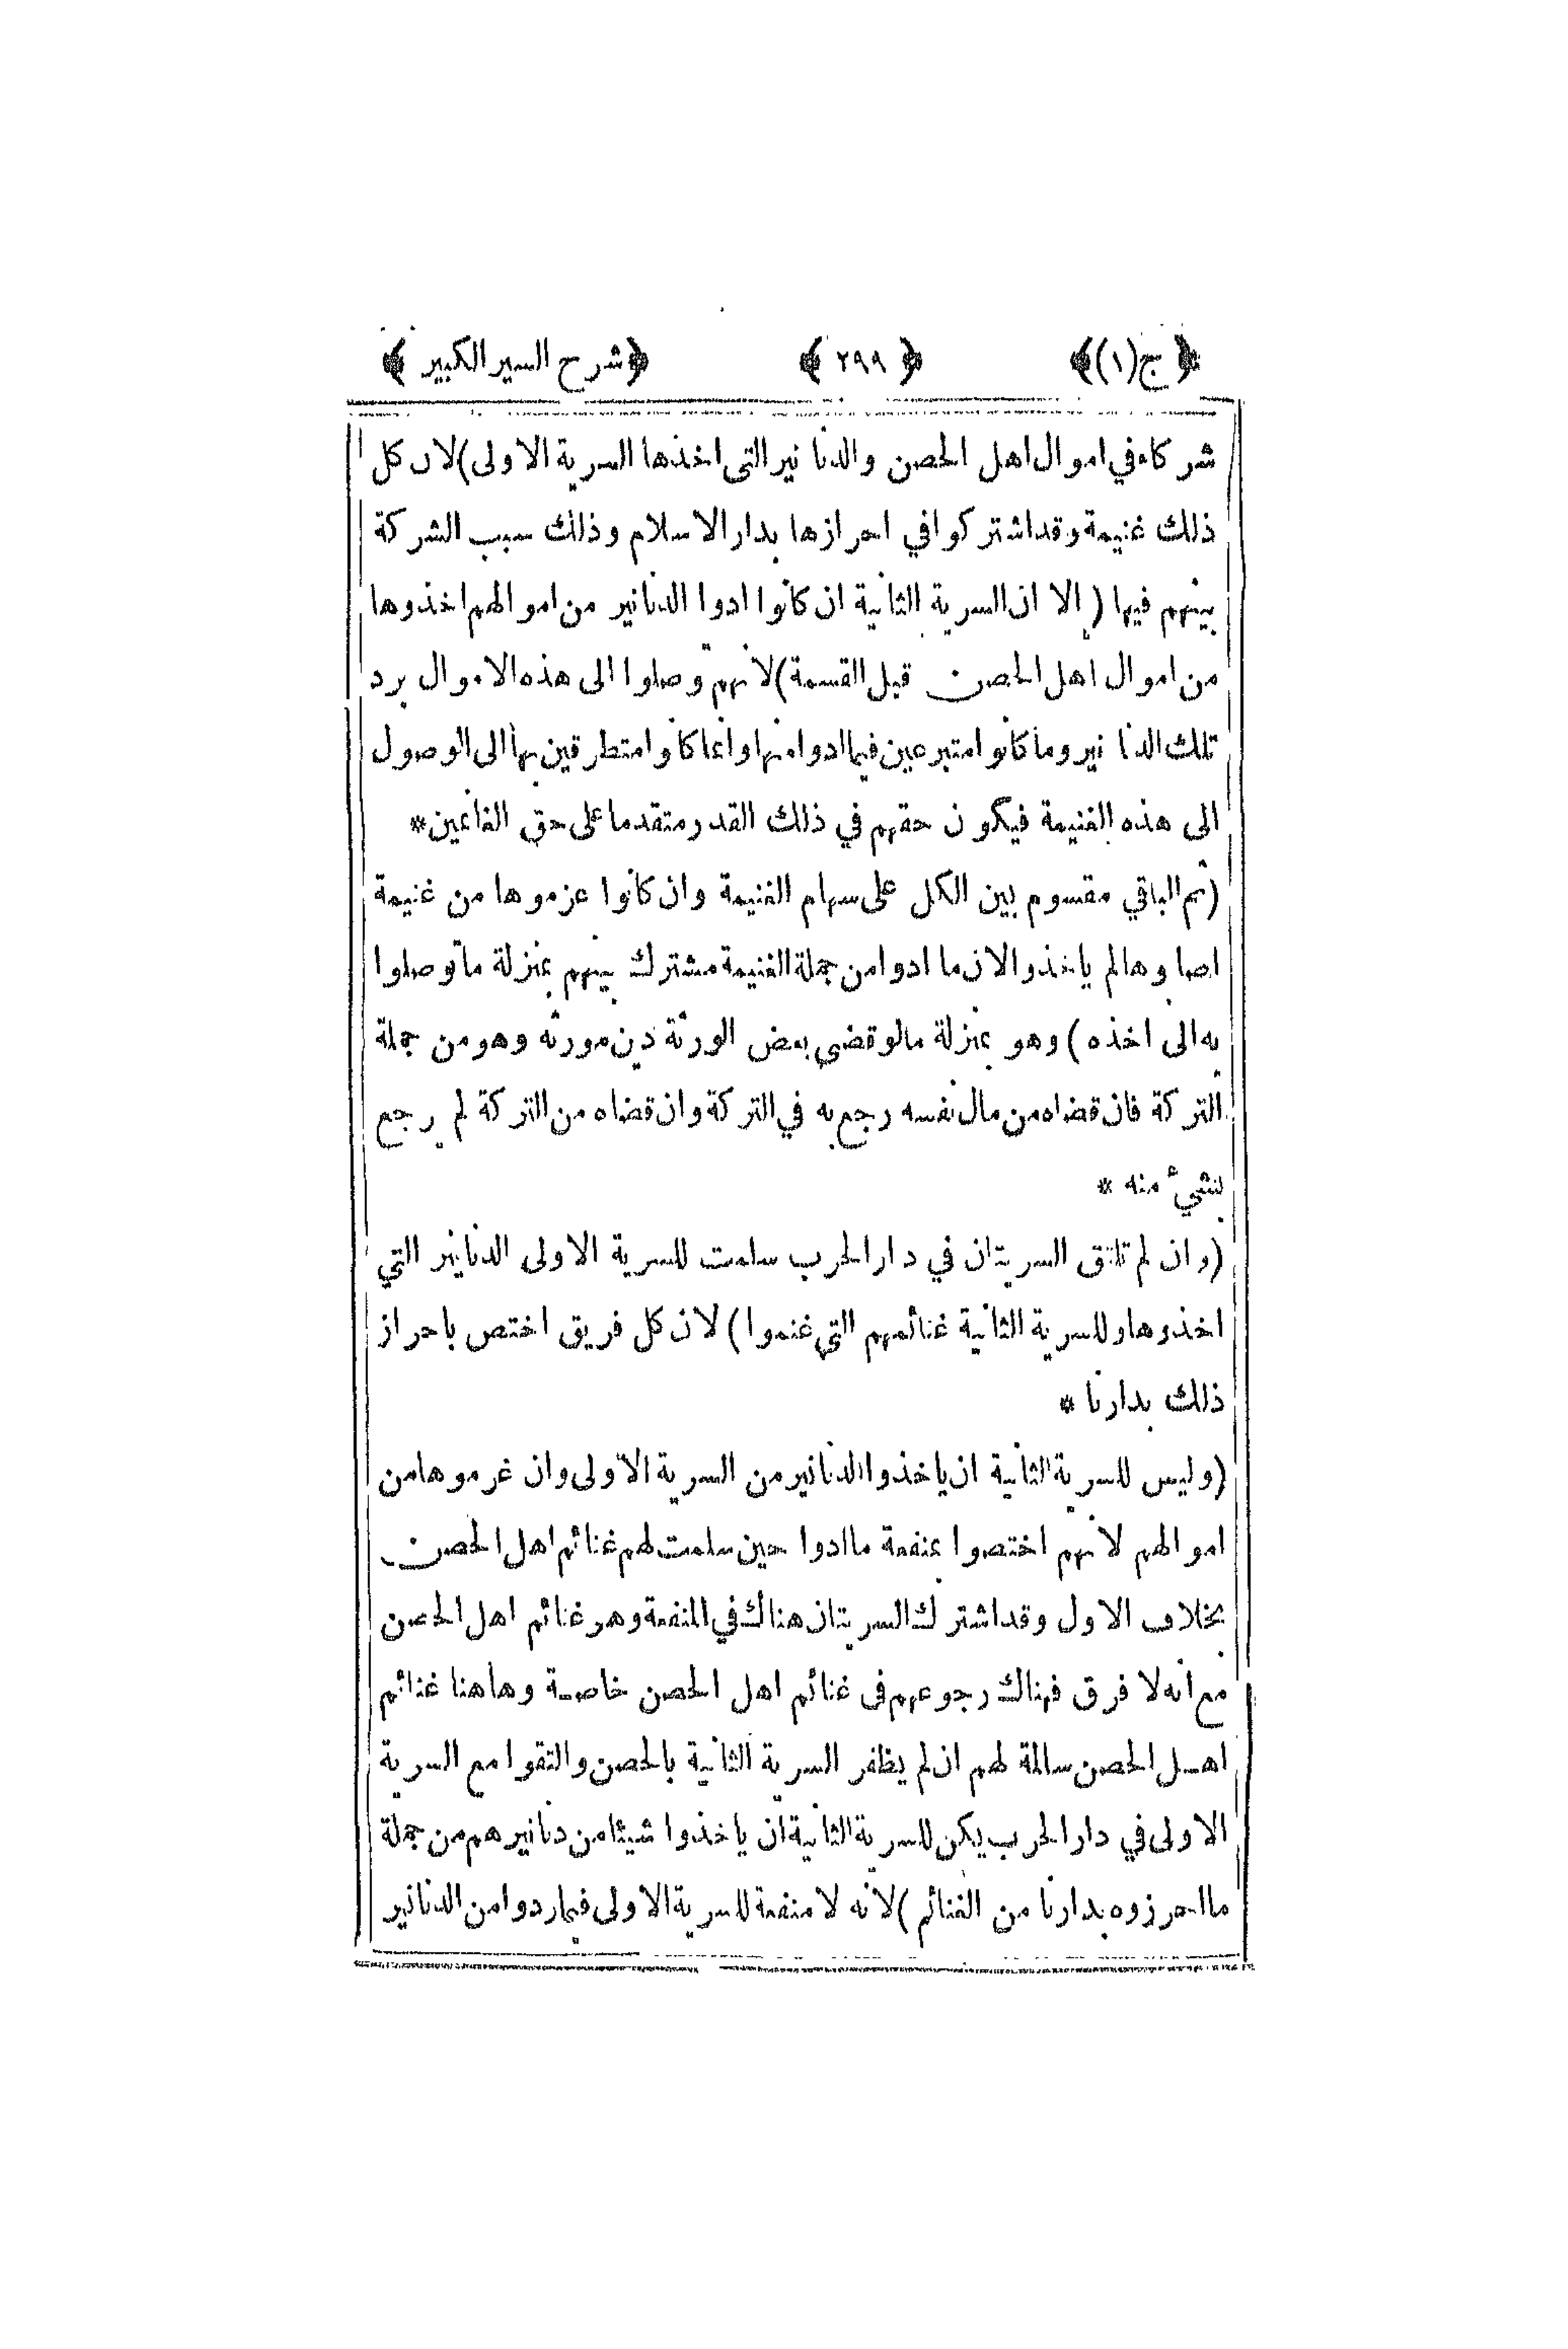 ﴿ ج (١) ﴾ ﴿ ٢٩٩ ﴾ ﴿ شرح السير الكبير ﴾
شركاء في اموال اهل الحصن والدنانير التى اخذها السرية الاولى) لان كل
ذلك غنيمة وقد اشتركوا في احرازها بدار الاسلام وذلك سبب الشركة
بينهم فيها (الا ان السرية الثانية ان كانوا ادوا الدنانير من اموالهم اخذوها
من اموال اهل الحصن قبل القسمة) لانهم وصلوا الى هذه الاموال برد
تلك الدنانير وما كانوا متبرعين فيما ادوا منها وانما كانوا متطرقين بها الى الوصول
الى هذه الغنيمة فيكون حقهم في ذلك القدر متقدما على حق الغانمين *
(ثم الباقي مقسوم بين الكل على سهام الغنيمة وان كانوا عزموها من غنيمة
اصابوها لم ياخذوا لان ما ادوا من جملة الغنيمة مشترك بينهم بمنزلة ما توصلوا
به الى اخذه) وهو بمنزلة مالو قضى بعض الورثة دين مورثه وهو من جملة
التركة فان قضاه من مال نفسه رجع به في التركة وان قضاه من التركة لم يرجع
بشيء منه *
(وان لم تلتق السريتان في دار الحرب سلمت للسرية الاولى الدنانير التي
اخذوها وللسرية الثانية غنائمهم التي غنموا) لان كل فريق اختص باحراز
ذلك بدارنا *
(وليس للسرية الثانية ان ياخذوا الدنانير من السرية الاولى وان غرموها من
اموالهم لانهم اختصوا بمنفعة ما ادوا حين سلمت لهم غنائم اهل الحصن
بخلاف الاول وقد اشترك السريتان هناك في المنفعة وهو غنائم اهل الحصن
مع انه لا فرق فهناك رجوعهم فى غنائم اهل الحصن خاصة وهاهنا غنائم
اهل الحصن سالمة لهم ان لم يظفر السرية الثانية بالحصن والتقوا مع السرية
الاولى في دار الحرب يكن للسرية الثانية ان ياخذوا شيئا من دنانيرهم من جملة
ما احرزوه بدارنا من الغنائم) لانه لا منفعة للسرية الاولى فيما ردوا من الدنانير